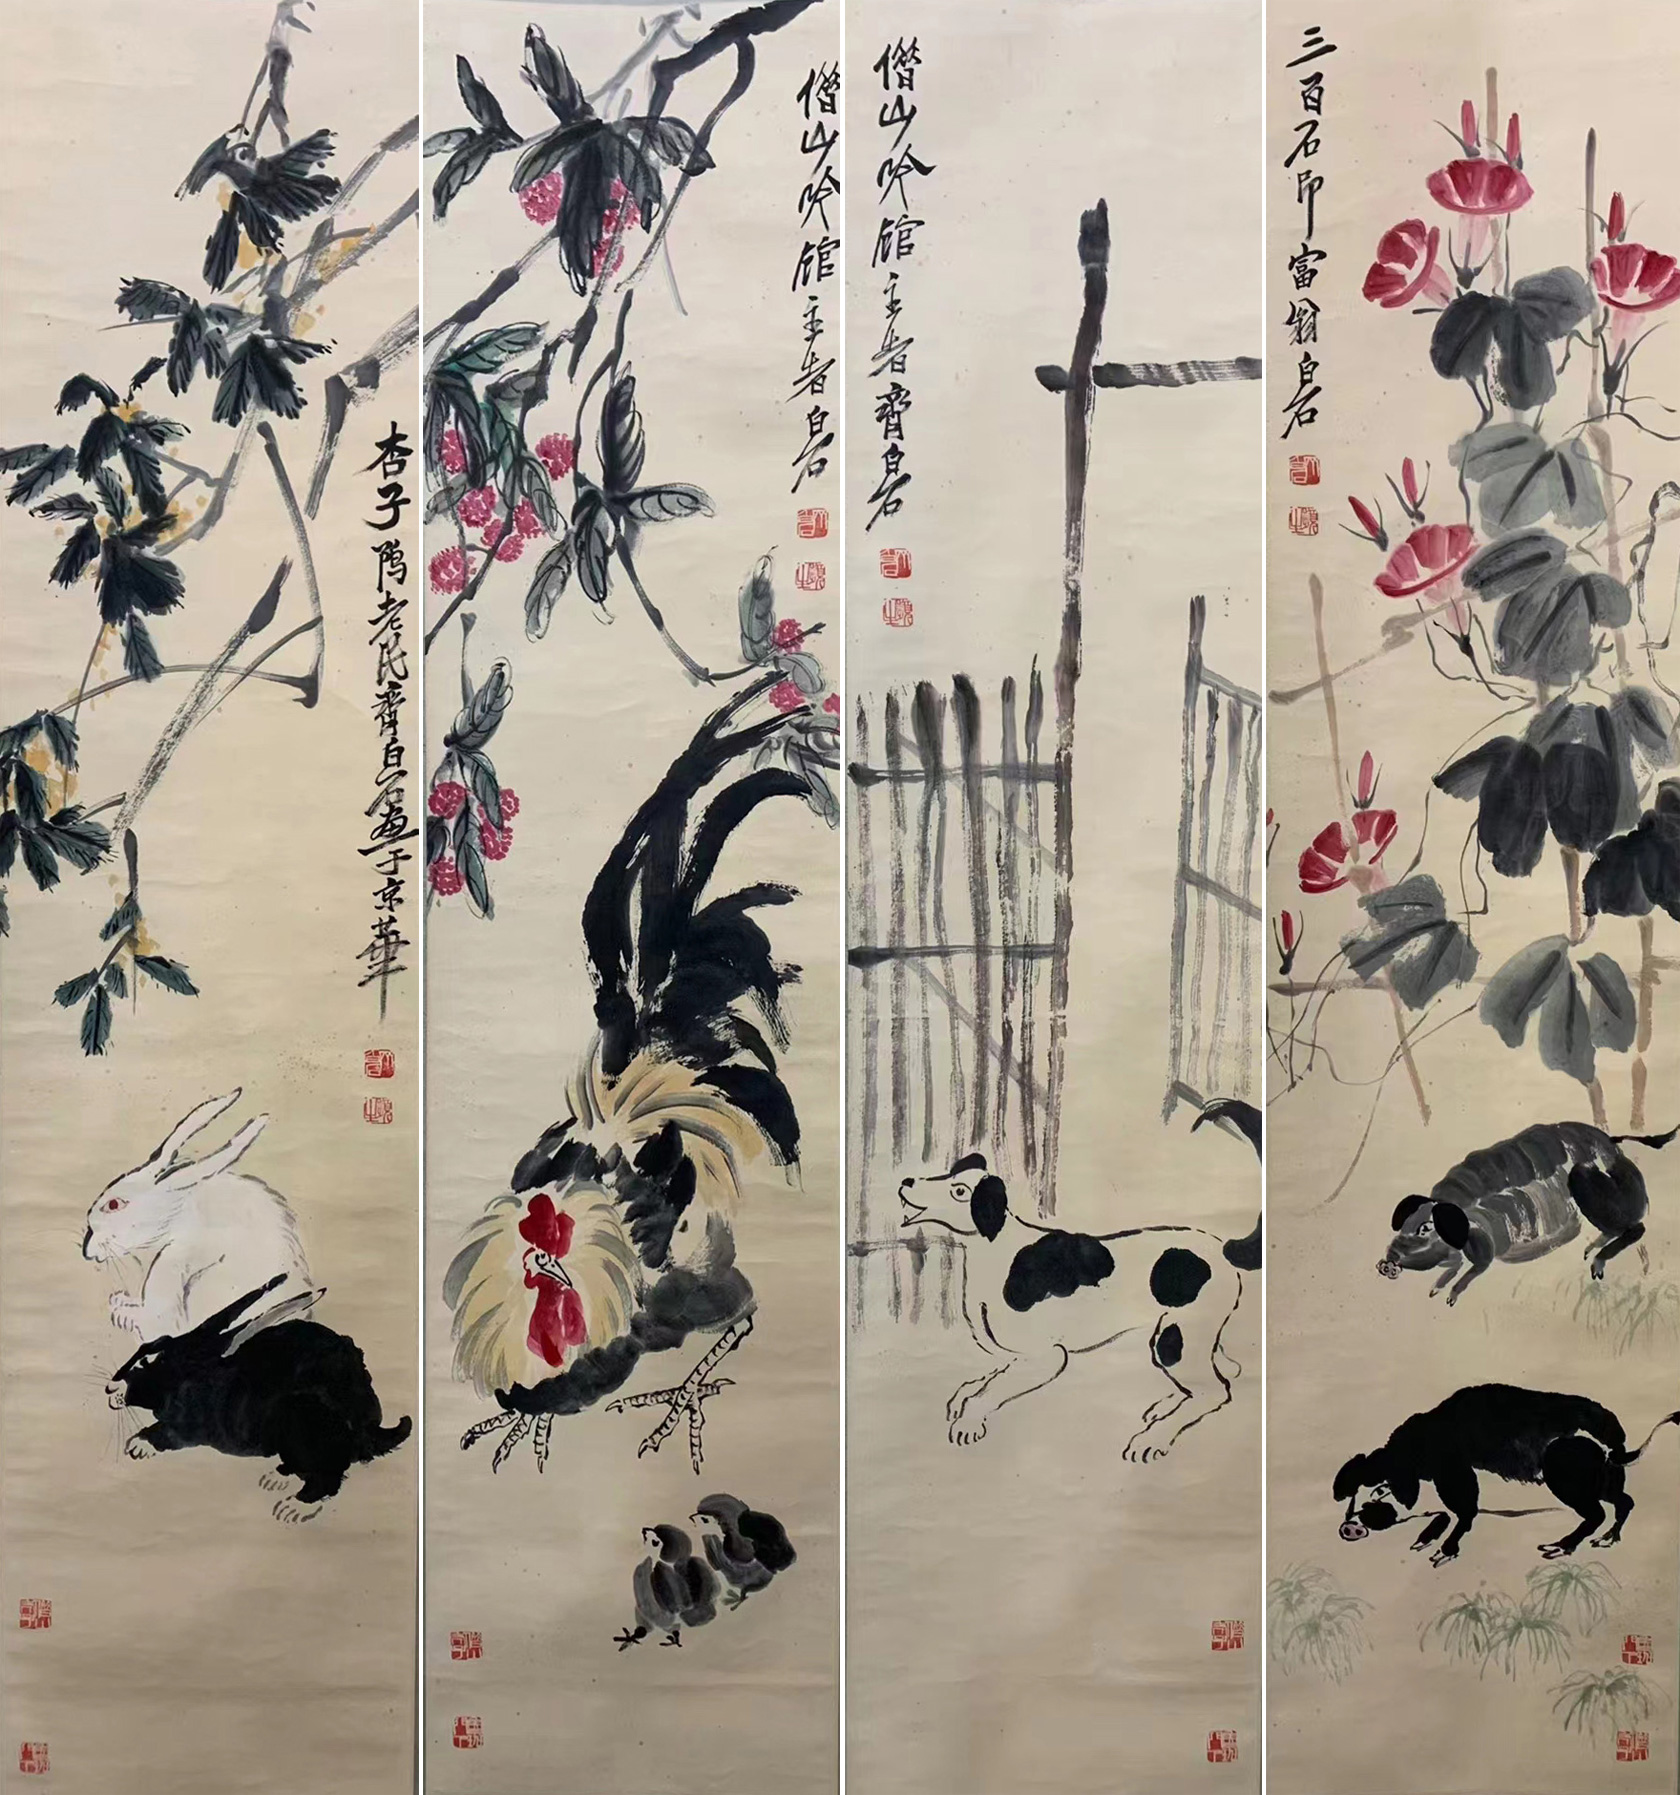 杏子隖老民齊白石畫于京華
借山吟館主者白石
借山吟館主者齊白石
三百石印富翁白石